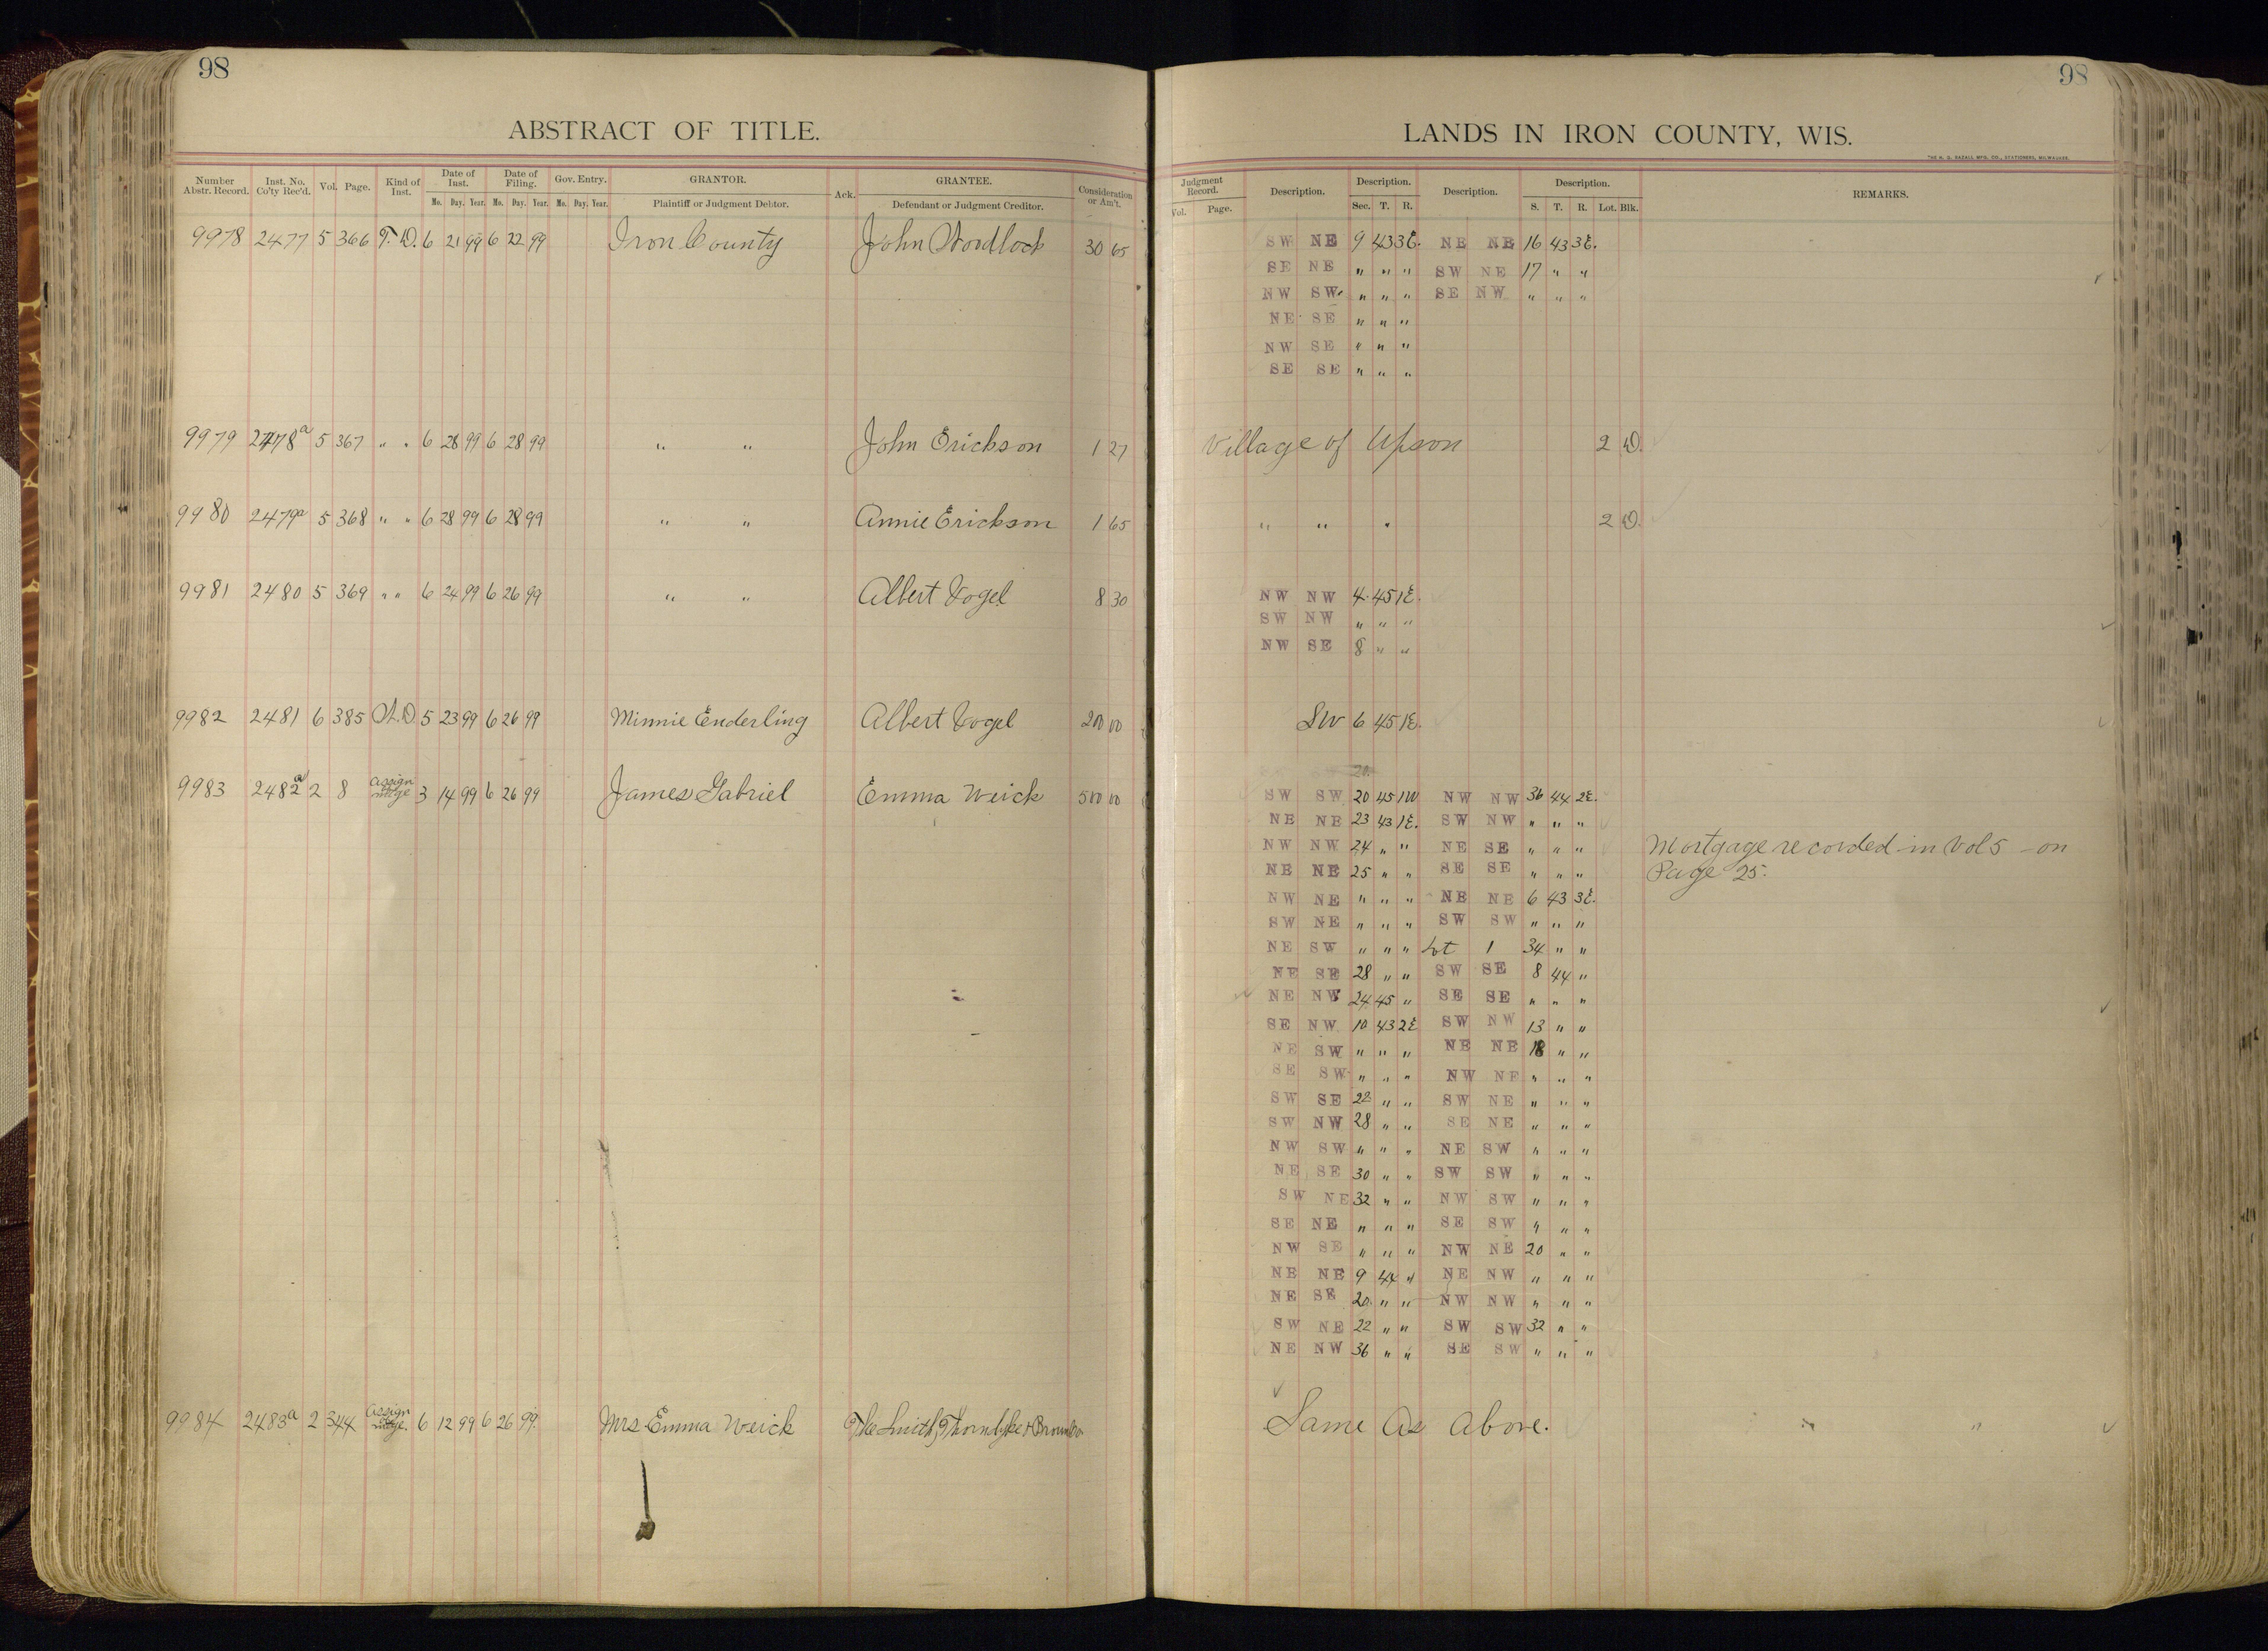 98
ABSTRACT OF TITLE.
Number Abstr. Record. Inst. No. Co'ty Rec'd. Vol. Page. Kind of Inst. Date of Inst. Mo. Day. Year. Date of Filing. Mo. Day. Year. Gov. Entry. Mo. Day. Year. GRANTOR. Plaintiff or Judgment Debtor. Ack. GRANTEE. Defendant or Judgment Creditor. Consideration or Am't.
9978 2477 5 366 T. D. 6 21 99 6 22 99 Iron County John 30 65
9979 2478a 5 367 " " 6 28 99 6 28 99 " " John Erickson 1 27
9980 2479a 5 368 " " 6 28 99 6 28 99 " " Annie Erickson 1 65
9981 2480 5 369 " " 6 24 99 6 26 99 " " Albert Vogel 8 30
9982 2481 6 385 D. 5 23 99 6 26 99 Minnie Enderling Albert Vogel 200 00
9983 2482a 2 8 Assign mtge 3 14 99 6 26 99 James Gabriel Emma Weick 500 00
9984 2483a 2 344 Assign mtge. 6 12 99 6 26 99. Mrs Emma Weick The Smith, Thorndyke & Brown Co
98
LANDS IN IRON COUNTY, WIS.
THE H. G. RAZALL MFG. CO., STATIONERS, MILWAUKEE.
Judgment Record. Vol. Page. Description. Description. Sec. T. R. Description. Description. S. T. R. Lot. Blk. REMARKS.
SW NE 9 43 3E. NE NE 16 43 3E.
SE NE " " " SW NE 17 " "
NW SW " " " SE NW " " "
NE SE " " "
NW SE " " "
SE SE " " "
Village of Upson 2 D.
" " " 2 D.
NW NW 4 45 1E.
SW NW " " "
NW SE 8 " "
SW 6 45 1E.
20
SW SW 20 45 1W NW NW 36 44 2E.
NE NE 23 43 1E. SW NW " " "
NW NW 24 " " NE SE " " " Mortgage recorded in Vol 5 on
NE NE 25 " " SE SE " " " Page 25.
NW NE " " " NE NE 6 43 3E.
SW NE " " " SW SW " " "
NE SW " " " Lot 1 34 " "
NE SE 28 " " SW SE 8 44 "
NE NW 24 45 " SE SE " " "
SE NW 10 43 2E SW NW 13 " "
NE SW " " " NE NE 18 " "
SE SW " " " NW NE " " "
SW SE 22 " " SW NE " " "
SW NW 28 " " SE NE " " "
NW SW " " " NE SW " " "
NE SE 30 " " SW SW " " "
SW NE 32 " " NW SW " " "
SE NE " " " SE SW " " "
NW SE " " " NW NE 20 " "
NE NE 9 44 " NE NW " " "
NE SE 20 " " NW NW " " "
SW NE 22 " " SW SW 32 " "
NE NW 36 " " SE SW " " "
Same As Above. " "